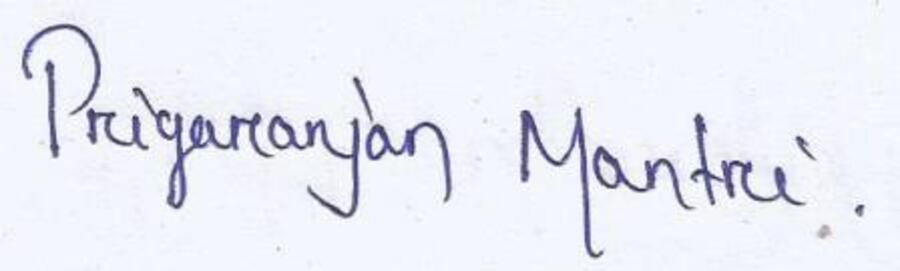 Priyaranjan Mantri.